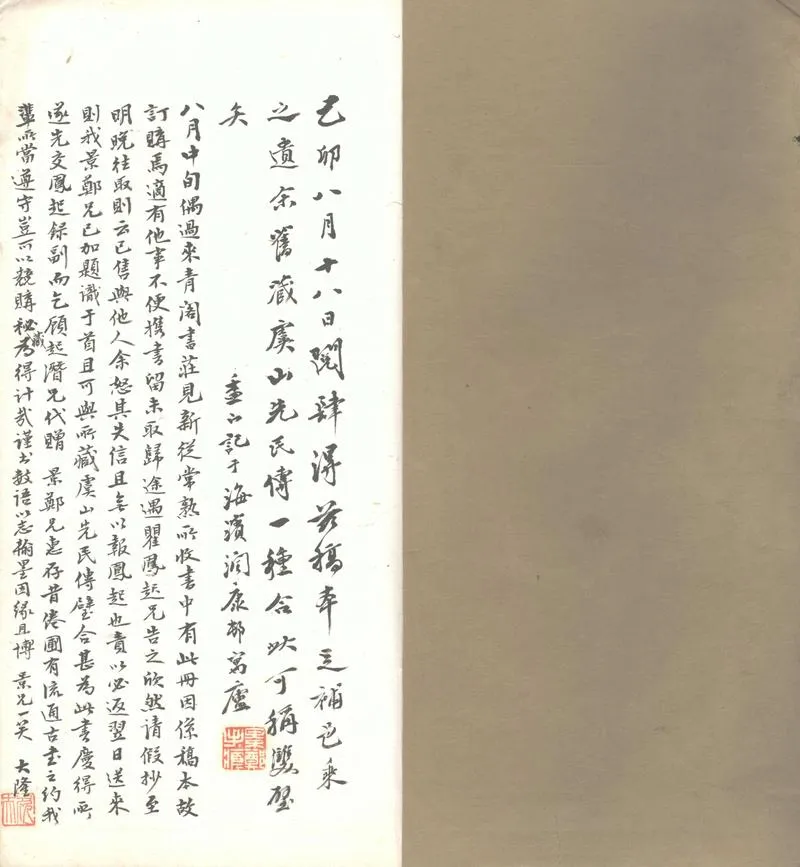 己卯八月十八日閱肆得茲稿本足補邑乘
之遺余舊藏虞山先民傳一種合此可稱雙璧
矣
記于海濱潤康邨寓廬
八月中旬偶過來青閣書莊見新從常熟所收書中有此冊因係稿本故
訂購焉適有他事不便攜書留未取歸途遇瞿鳳起兄告之欣然請假抄至
明晚往取則云已售與他人余怒其失信且無以報鳳起也責以必返翌日送來
則我景鄭兄已加題識于首且可與所藏虞山先民傳璧合甚為此書慶得所
遂先交鳳起錄副而乞顧起潛兄代贈 景鄭兄惠存昔倦圃有流通古書之約我
輩所當遵守豈可以競購秘藏為得計哉謹書數語以志翰墨因緣且博 景兄一笑 大隆